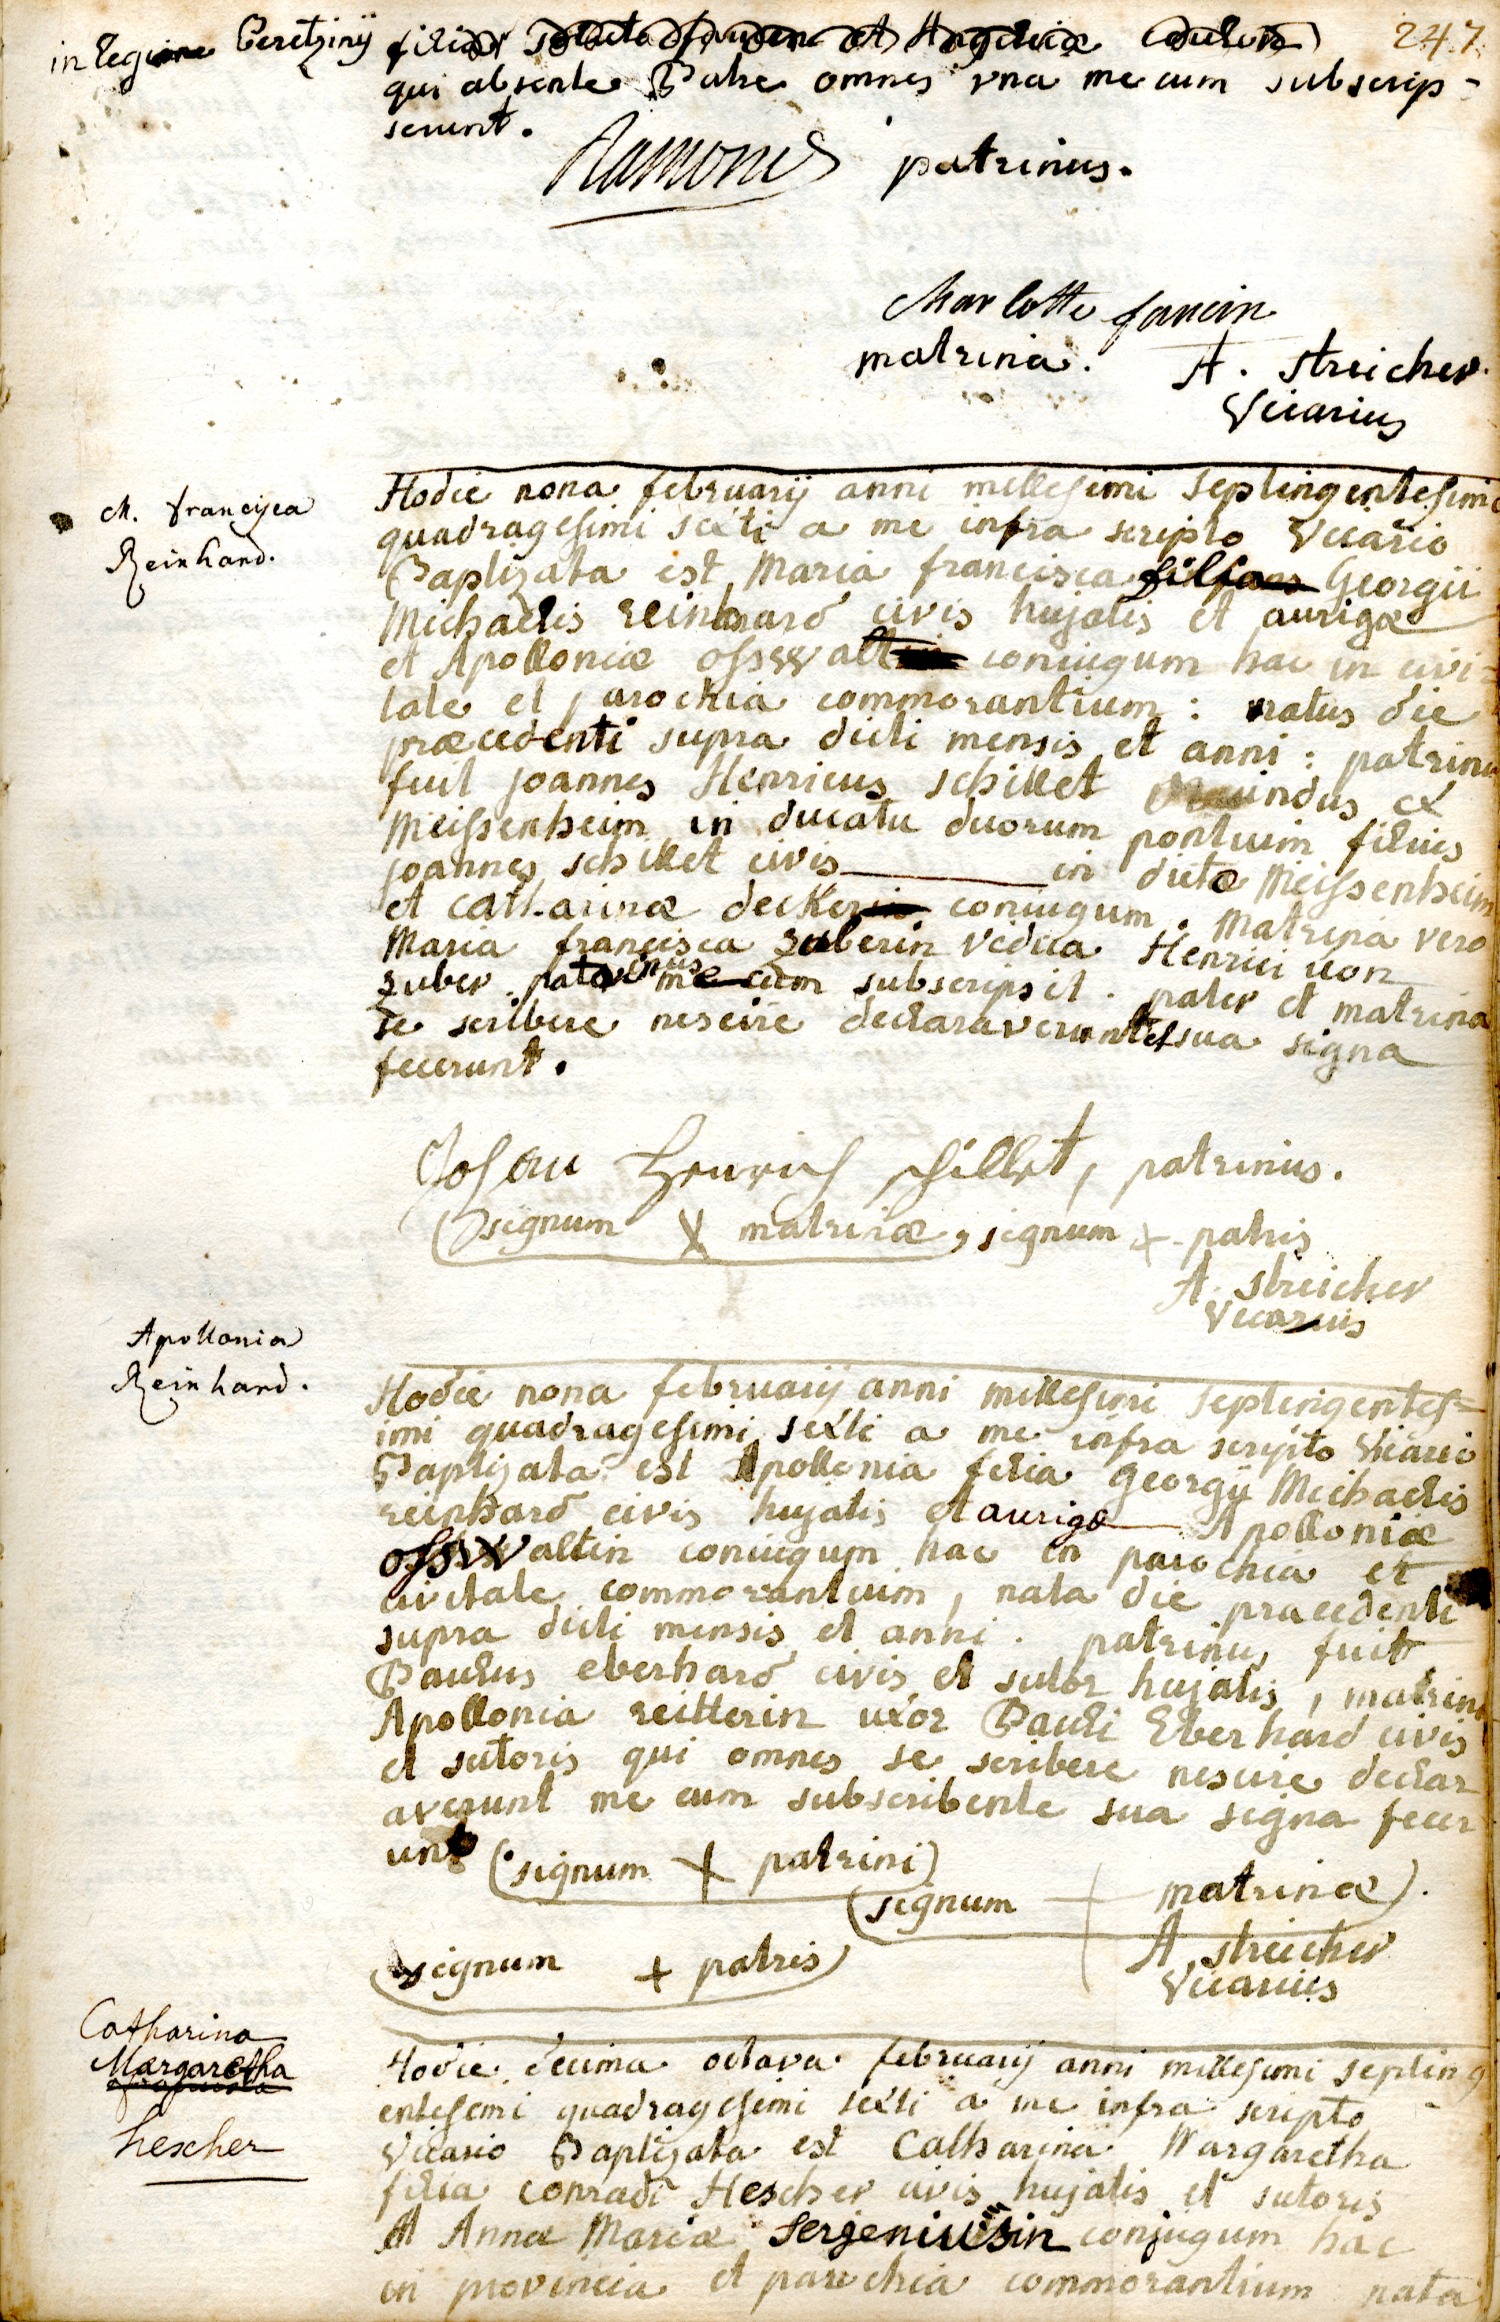 247
in regione Beretziny filia
qui absente Patre omnes vna me cum subscrip-
serunt.
Ramond patrinus.
charlotte fancin
matrina. A. streicher
Vicarius
M. francisca
Reinhard.
Hodie nona februarij anni millesimi septingentesimi
quadragesimi sexti a me infra scripto Vicario
Baptizata est Maria francisca filia Georgii
Michaelis reinhard civis hujatis et aurigæ
et Apolloniæ osswalt coniugum hac in civi-
tate et parochia commorantium : natus die
præcedenti supra dicti mensis et anni : patrinus
fuit joannes Henricus schillet oriundus ex
Meissenheim in ducatu duorum pontium filius
joannes schillet civis in dicto Meissenheim
et catharinæ decker coniugum. Matrina vero
Maria francisca zuberin vidua Henrici von
zuber. patrinus me cum subscripsit. pater et matrina
se scribere nescire declaraverunt et sua signa
fecerunt.
Johan Henrich schillet, patrinus.
(signum X matrinæ, signum + patris
A. streicher
Vicarius
Apollonia
Reinhard.
Hodie nona februarij anni millesimi septingentes-
imi quadragesimi sexti a me infra scripto Vicario
Baptizata est Apollonia filia Georgij Michaelis
reinhard civis hujatis et aurigæ Apolloniæ
osswaltin coniugum hac in parochia et
civitate commorantium, nata die præcedenti
supra dicti mensis et anni. patrinus fuit
Paulus eberhard civis et sutor hujatis, matrina
Apollonia reitterin uxor Pauli Eberhard civis
et sutoris qui omnes se scribere nescire declar
averunt me cum subscribente sua signa fecer
unt (signum + patrini)
(signum + matrinæ).
(signum + patris)
A streicher
Vicarius
Catharina
Margaretha
hescher
Hodie decima octava februarij anni millesimi septing
entesimi quadragesimi sexti a me infra scripto
Vicario Baptizata est Catharina Margaretha
filia conradi Hescher civis hujatis et sutoris
et Annæ Mariæ serjeniussin conjugum hac
in provincia et parochia commorantium nata